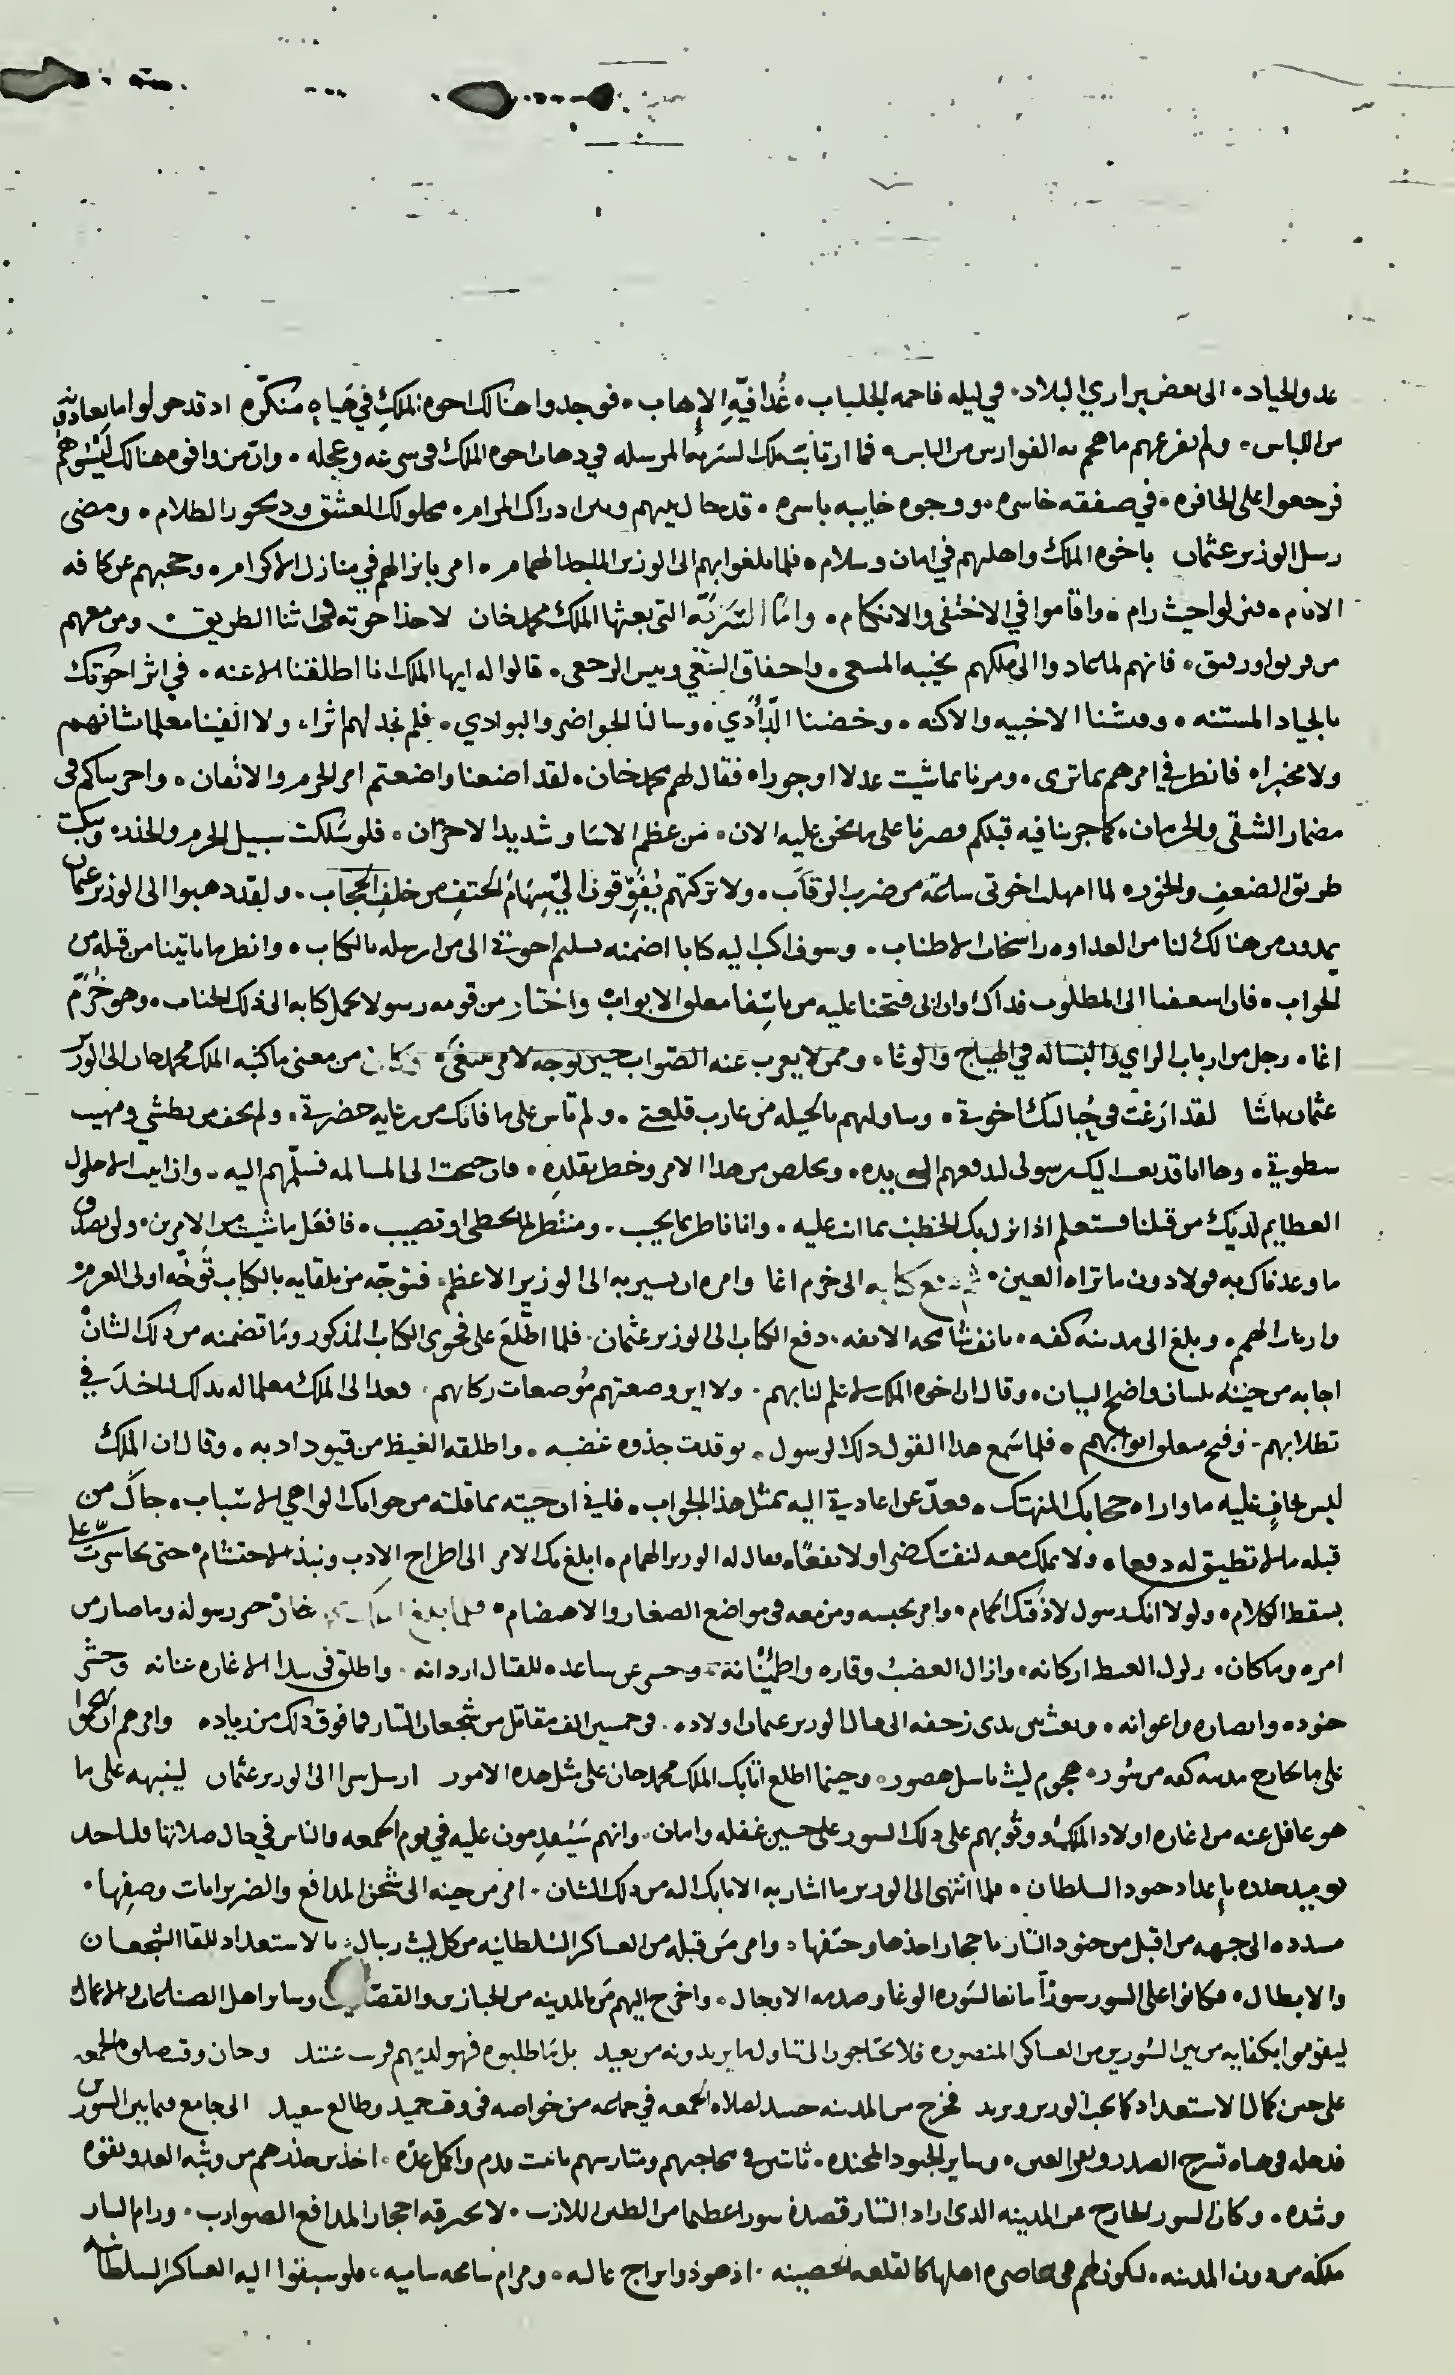 عدو الجياد الى بعض براري البلاد في ليله فاحمه الجلباب غُدافيّهِ الإهاب فوجدوا هنالك اخوه الملكِ في خباء مُنكّره اد قد حولوا ما يعاد
من اللباس ولم يفرعهم ما هجم به الفوارس من الباس فما ارتابت تلك السريه المرسله في دهاب اخوه الملك في سرعه وعجله وان من وافوه هنالك ليسوا هم
فرجعوا على الحافره في صفقه خاسره ووجوه خايبه باسره قد حال بينهم وبين ادراك المرام حلولك الغسق وديجور الظلام ومضى
رسل الوزير عثمان باخوه الملك واهلهم في امان وسلام فلما بلغوا بهم الى الوزير الهمام امر بانزالهم في منازل الاكرام وحجبهم عن كافه
الانام فنزلوا حيث رام واقاموا في الاختفى والانكتام وامّا السَّرِيّه التي بعثها الملك محمد خان لاخذ اخوته في اثنا الطريق ومن معهم
من فريق ورفيق فانهم لما عادوا الى ملكهم بخيبه المسعى واخفاق السَّعي وبيس الرجعى قالوا له ايها الملك انا اطلقنا الاعنه في اثر اخوتك
بالجياد المستنه وفتشنا الاخبيه والاكنه وخضنا الدّأدي وسالنا الحواضر والبوادي فلم نجد لهم اثرا ولا الفينا معلما بشانهم
ولا مخبرا فانظر في امرهم بما ترى ومرنا بما شيت عدلا او جورا فقال لهم محمد خان لقد اضعنا واضعتم امر الحزم والاتقان واجريناكم في
مضمار الشقى والحرمان كما جرينا فيه قبلكم فصرنا على ما نحن عليه الان من عظم الاسا وشديد الاحزان فلو سلكت سبيل الحزم والحذر ونكبت
طريق الضعف والخور لما امهلت اخوتي ساعة من ضرب الرقاب ولا تركتهم يُفَوِّقون اليّ سِهَامُ الحتفِ من خلفِ الحجاب ولقد دهبوا الى الوزير عثمان
يمدون من هنالك لنا من العداوه راسخات الاطناب وسوف اكتب اليه كتابا اضمنه تسليم اخوتي الى من ارسله بالكتاب وانظر ما ياتينا من قبله من
الجواب فان اسعفنا الى المطلوب فداك وان ابى فتحنا عليه من باسنا مغلق الابواب واختار من قومه رسولا يحمل كتابه الى ذلك الجناب وهو خُرّم
اغا رجل من ارباب الراي والبساله في الهياج والوغا وممن لا يعرب عنه الصّواب حين توجه لامر مبتغى وكان من معنى ما كتبه الملك محمد خان الى الوزير
عثمان باشا لقد ارغت في حِبَالتِكَ اخوتي وساولهم بالحيله من غارب قلعتي ولم تاس على ما فاتك من رعايه حضرتي ولم تخف من بطشي ومهيب
سطوتي وها انا قد بعثت اليك رسولي لتدفعهم الى يده وتخلص من هذا الامر وخطر تقلده فان جنحت الى المسالمه فسلّمهم اليه وان ابيت الا حلول
العظايم لديك من قبلنا فستعلم اذا نزل بك الخطبُ بما انت عليه وانا ناظر بما يجب ومنتظر لما تخطى او تصيب فافعل ما شيت من الامرين ولن يصدق
ما وعدناك به قولا دون ما تراه العين ثم دفع كتابه الى خرم اغا وامره ان يسير به الى الوزير الاعظم فتوجّه من تلقايه بالكتاب توجّه اولى العزم
وارباب الهمم وبلغ الى مدينه كفه بانف شامخه الانفه دفع الكتاب الى الوزير عثمان فلما اطّلع على فحوى الكتاب المذكور وما تضمنه من ذلك الشانْ
اجابه من حينه بلسان واضح البيان وقال ان اخوه الملك لا علم لنا بهم ولا اين وضعتهم مُوضعات ركابهم فعد الى الملك معلما له بذلك لياخذَ في
تطلابهم وفتح مغلق ابوابهم فلما سَمع هدا القول دلك الرسول توقدت جذوه غضبه واطلقه الغيظ من قيود ادبه وقال ان الملك
ليس بخافٍ عليه ما وارا حجابك المنهتك فعدّ عن اعادتي اليه بمثل هذا الجواب فاني ان جيته بما قلته من جوابك الواهي الاسباب جاك من
قبله ما لا تطيق له دفعا ولا تملك معه لنفسك ضرا ولا نفعًا فقال له الوزير الهمام ابلغ بك الامر الى اطراح الادب ونبذ الاحتشام حتى تجاسرت عليّ
بسقط الكلام ولولا انك رسول لاذقتك الحمام وامر بحبسه ومن معه في مواضع الصغار والاهتضام فلما بلغ الملك محمد خان خبر رسوله وما صار من
امره وما كان زلزل الغيظ اركانه وازال الغضبُ وقاره واطمئنانة وحسر عن ساعده للقتال اردانه واطلق في بيدا الاغاره عنانه وحشر
جنوده وانصاره واعوانه وبعث بين يدى زحفه الى قتال الوزير عثمان اولاده في خمسين الف مقاتل من شجعان التتار فما فوق ذلك من زياده وامرهم ان يهجموا
على ما بخارج مدينه كفه من سُور هجوم ليث باسل هصور وحينما اطلع اتابك الملك محمد خان على مثل هذه الامور ارسل سرا الى الوزير عثمان لينبهه على ما
هو غافل عنه من اغاره اولاد الملك ووثُوبهم على دلك السور على حسين غفله وامان وانهم سَيُقدِمون عليه في يوم الجمعه والناس في حال صلاتها فلياخد
يوميد حذره بإعداد جنود السلطان فلما انتهى الى الوزير ما اشار به الاتابك اليه من دلك الشان امر من حينه الى شحن المدافع والضربزانات وصفِها
مسدده الى جهه من اقبل من جنود التتار باحجارها وحتفها وامر من قبله من العساكر السلطانيه من كل ليث ريبال بالاستعداد للقا الشجعان
والابطال فكانوا على السور سورًا مانعا لسَوره الوغا وصدمه الاوجال واخرج اليهم من بالمدينه من الخبازين والقصابين وساير اهل الصناعات والاعمال
ليقوموا بكفايه من بين السُورين من العساكر المنصوره فلا يحتاجون الى تناول ما يريدونه من بعيد بل مَا طلبوه فهو لديهم قريب عتيد وحان وقت صلوه الجمعه
على حين كمال الاستعداد كما يحب الوزير ويريد فخرج من المدينه حينيد لصلاه الجمعه في جماعه من خواصه في وقت حميد وطالع سعيد الى جامع فيما بين السورين
فدخله في هناه تسرح الصدر وتقر العين وساير الجنود المجنده ثابتين في محاجبهم ومتارسهم باثبت قدم واكمل عدّه اخذين حذرهم من وثبه العدو بقوه
وشده وكان السور الخارج من المدينه الدى اراد التتار قصدهُ سورا عظيما من الطين اللازب لا تخرقه احجار المدافع الصوايب ورام التتار
ملكه من دون المدينه ليكون لهم في محاصره اهلها كالقلعه الحصينه اذ هو ذو ابراج عاليه ومرام شامخه ساميه فلو سبقوا اليه العساكر السلطانيه